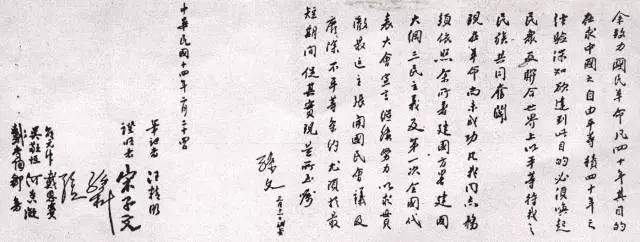 余致力國民革命凡四十年其目的
在求中國之自由平等積四十年之
經驗深知欲達到此目的必須喚起
民衆及聯合世界上以平等待我之
民族共同奮鬭
現在革命尚未成功凡我同志務
須依照余所著建國方畧建國
大綱三民主義及第一次全國代
表大會宣言繼續努力以求貫
徹最近主張開國民會議及
廢除不平等條約尤須於最
短期間促其實現是所至囑
孫文 三月十一日補簽
中華民國十四年二月二十四日
筆記者 汪精衛
證明者 宋子文
孫科
戴恩賽
何香凝
吳敬恆
鄒魯